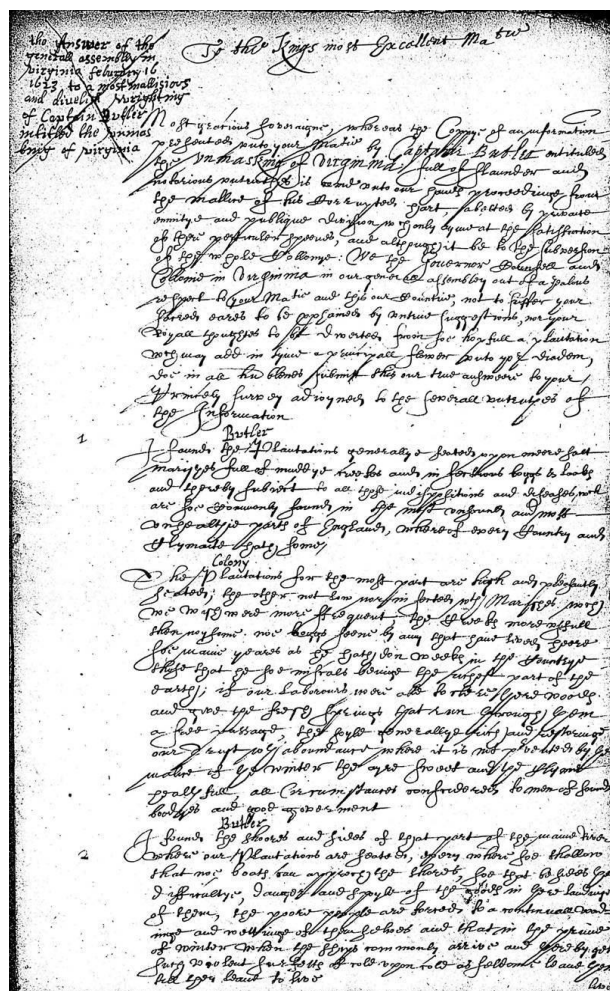 the Answer of the
generall assembly in
virginia february 16
1623 to a most mallisious
and divelish wrighting
of Captain Butler
intitled the unmas
king of virginia
To the Kings most Excellent Matie
Most gratious soveraigne, whereas the Coppye of an information
presented unto your Matie by Capt Nat: Butler entituled
the unmasking of Virginia, full of slaunder and
notorious untruthes is come unto our hands, proceedinge from
the mallice of his Corrupted hart, abetted by private
enmitye and publique division wch only ayme at the satisfaction
of their perticuler spleens, and although it be to the subversion
of the whole Collonye: We the Governor Counsell and
Collonie in Virginia in our generall assembley out of a zealous
respect to your Matie and this our Countrie, not to suffer your
sacred eares to be prophaned by untrue suggestions, nor your
Royall thoughts to be diverted from soe hopfull a plantation
wch may add in tyme a principall flower unto yor diadem,
doe in all humblenes submitt this our true answeere to your
Princely survey adjoyned to the severall untruthes of
the Information
Butler
1
I founde the Plantations generallye seated uppon meere salt
marishes full of muddye Creekes and in fectious boggs & lakes
and thereby subject to all those indispositions and diseases, wch
are soe commonly found in the most unsound and most
unhealthie parts of England, whereof every Country and
Clymate hath some,
Colony
The Plantations for the most part are high and pleasantly
seated; the other not low nor in fected wth Marishes, wch
we wish were more frequent; the Creeks more usefull
then noysome: noe boggs seene by any that have lived heere
soe manie yeares as he hath don weeks in the Countrye
those that he soe miscals beinge the richest part of the
earth, if our Labours were able to cleere there woods
and give the fresh springs that run through them
a free passage, the soyle generallye rich and restoringe
our trust wth aboundance where it is not
of the winter the ayre sweet and the Clyme
healthfull all Circumstances considered to men of sound
boodyes and good goverment
Butler
2
I founde the shoores and sides of that part of the maine river
where our Plantations are seated, every where soe shallow
that noe boats can approch the shores, soe that besides the
difficultye, danger and spoyle of the goods in there landinge
of them, the poore people are forced to a continuall wad
inge and wettinge of themselves and that in the prime
of winter when the ships commonly arrive and thereby get
such violent surfetts of cold uppon cold as seldome leave them
till they leave to live